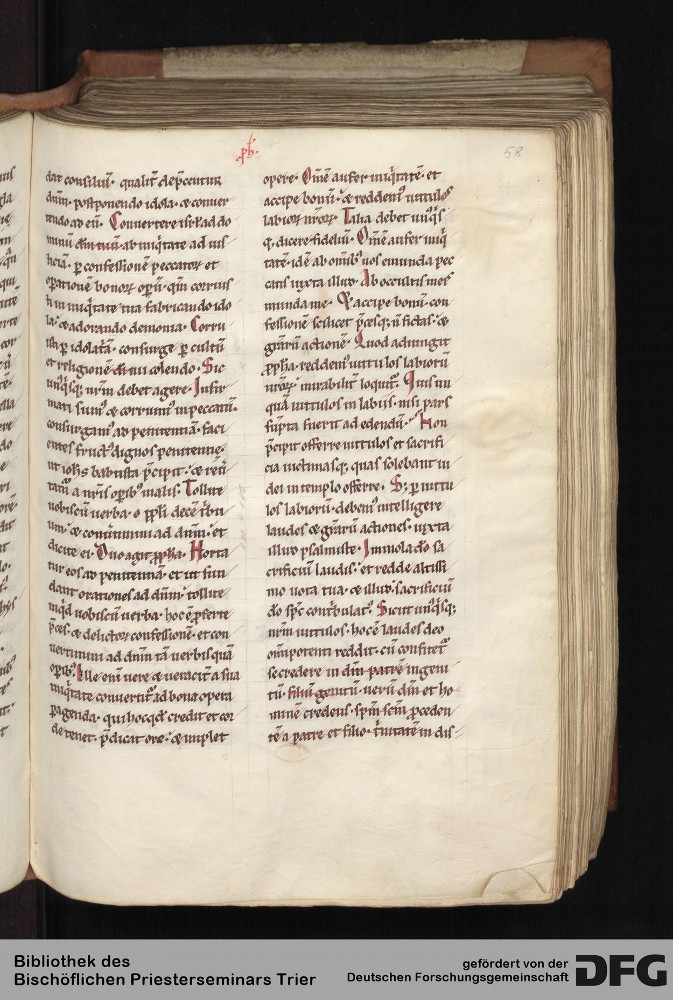 ꝓph.
58
dat consiliū. qualit̄ dep̄centur
dn̄m. postponendo idola. & conuer
tendo ad eū. Conuertere isrl̄ ad do
minū dm̄ tuū. ab iniq̇tate ad ius
ticiā. ꝑ confessionē peccatoꝝ et
oꝑationē bonoꝝ oꝑū. qm̄ corruis
ti in iniq̇tate tua fabricando ido
la. & adorando demonia. Corru
isti ꝑ idolatā. consurge ꝑ cultū
et religionē di tui colendo. Sic
unq̇sq; nr̄m debet agere. Infir
mati sum᷒ & corruim᷒ in peccatū.
consurgam᷒ ad penitentiā. faci
entes fruct᷒ dignos penitentie.
ut ioh̄s babtista p̄cipit. &
a nr̄is oꝑib᷒ malis. Tollite
uobiscū uerba. o ppl̄i
& conuertimini ad dn̄m. et
dicite ei. Quo agit ꝓph̄a. Horta
tur eos ad penitentiā. et ut fun
dant orationes ad dn̄m. tollite
inq̇d uobiscū uerba. hoc ē ꝓferte
p̄ces. & delictoꝝ confessionē. et con
uertimini ad dn̄m tā uerbis quā
oꝑib᷒. Ille enī uere & ueracit̄ a sua
iniq̇tate conuertit᷑ ad bona opera
ꝑagenda. qui hoc qd̄ credit et cor
de tenet. p̄dicat ore. & implet
opere. Om̄e aufer iniq̇tatē. et
accipe bonū. & reddem᷒ uitulos
labioꝝ nr̄oꝝ. Talia debet unq̇s
q; dicere fideliū. Om̄e aufer iniq̇
tatē. id ē ab om̄ib᷒ nos emunda pec
catis iuxta illud. Ab occultis meis
munda me. & accipe bonū. con
fessionē scilicet p̄cesq; n̄ fictas. &
gr̄arū actionē. Quod adiungit
ꝓph̄a. reddem᷒ uitulos labiorū
nr̄oꝝ. mirabilit̄ loquit᷑.
quā uitulos in labiis. nisi pars
fuerit ad edendū. Non
p̄cipit offerre uitulos et sacrifi
cia uictimasq; quas solebant iu
dei in templo offerre. S; ꝑ uitu
los labiorū. debem᷒ intelligere
laudes & gr̄arū actiones. iuxta
illud psalmiste. Immola dō sa
crificiū laudis. et redde altissi
mo uota tua. & illud. sacrificiū
dō sp̄c contribulat᷒. Sicut unq̇sq;
nr̄m uitulos. hoc ē laudes deo
om̄ipotenti reddit. cū confitet᷑
se credere in dm̄ patrē ingeni
tū. filiū genitū. uerū dm̄ et ho
minē credens. sp̄m sc̄m ꝓceden
tē a patre et filio. t̄nitatē in dis
Bibliothek des
Bischöflichen Priesterseminars Trier
gefördert von der
Deutschen Forschungsgemeinschaft
DFG